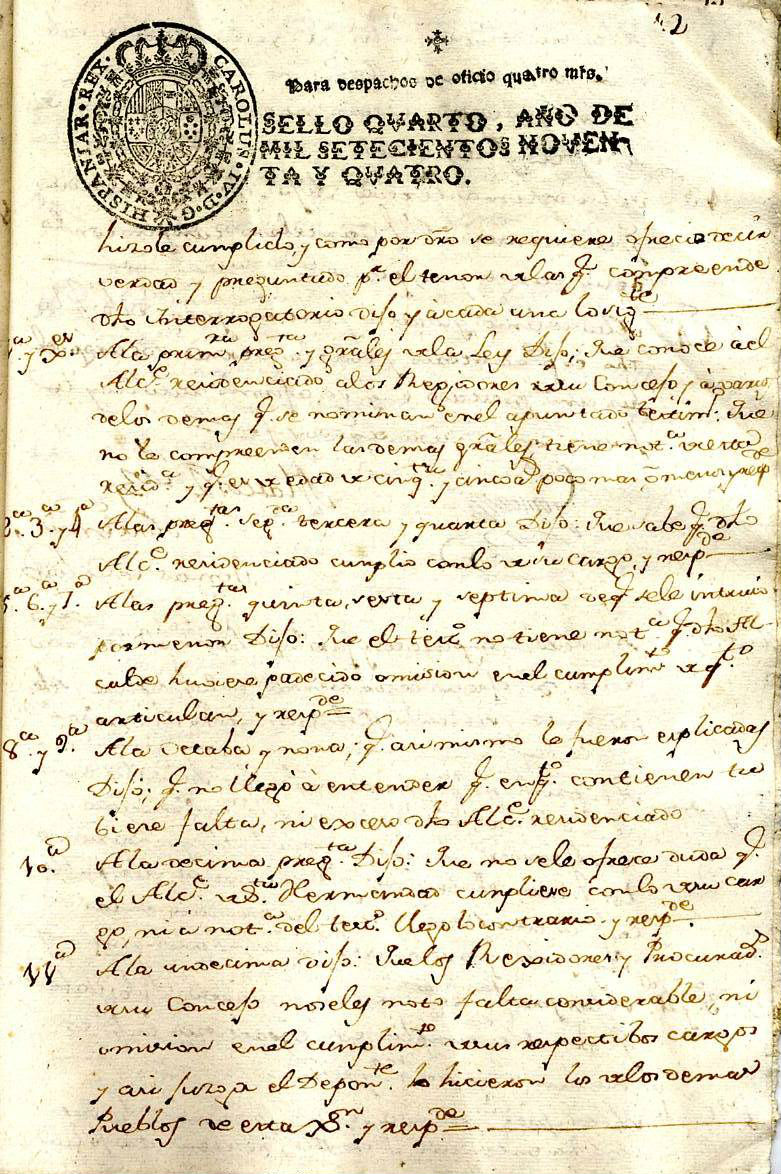 42
Para despachos de oficio quatro mrs.
SELLO QVARTO, AÑO DE
MIL SETECIENTOS NOVEN-
TA Y QVATRO.
CAROLUS·IV·D·G·HISPANIAR·REX·
hizole cumplido, y como por dro se requiere ofrecio decir
verdad y preguntado pr. el tenor de las q. compreende
dho Interrogatorio Dijo y à cada una lo sigte
A la primra. pregta. y grãles de la Ley Dijo; Que conoce à el
Alce. residenciado a los Rexidores de su Concejo y à varios
de los demas q. se nominan en el apuntado Que
no le compreenden las demas grãles, tiene nota. de esta
y q. es de edad de cinqta. y cinco as. poco mas õ menos y respde
2a. 3a. y 4a
A las pregtas. segda. tercera y quarta Dijo: Que sabe q. dho
Alce. residenciado cumplio con lo de su cargo, y respde
5a. 6a. y 7a
A las pregtas. quinta, sexta y septima de q. se le intruio
por menor Dijo: Que el tesgo. no tiene nota. q. dho Al-
calde huviere padecido omision en el cumplimto. de qto.
articulan, y respde
8a. y 9a
A la Octaba y nona; q. asimismo le fueron explicadas
Dijo; q. no llegò à entender q. en qto. contienen tu
biere falta, ni exceso dho Alce. residenciado
10a
A la decima pregta. Dijo: Que no se le ofrece duda q.
el Alce. de Sta. Hermandad cumpliere con lo de su car
go, ni à nota. del tesgo. llego lo contrario y respde
11a
A la undecima Dijo: Que los Rexidores y Procurador
de su Concejo no seles noto falta considerable, ni
omision en el cumplimto. de sus respectibos cargos
y asi juzga el Deponte. lo hicieron los de los demas
Pueblos de esta Jon. y respde